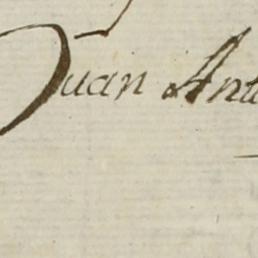 Juan Anto